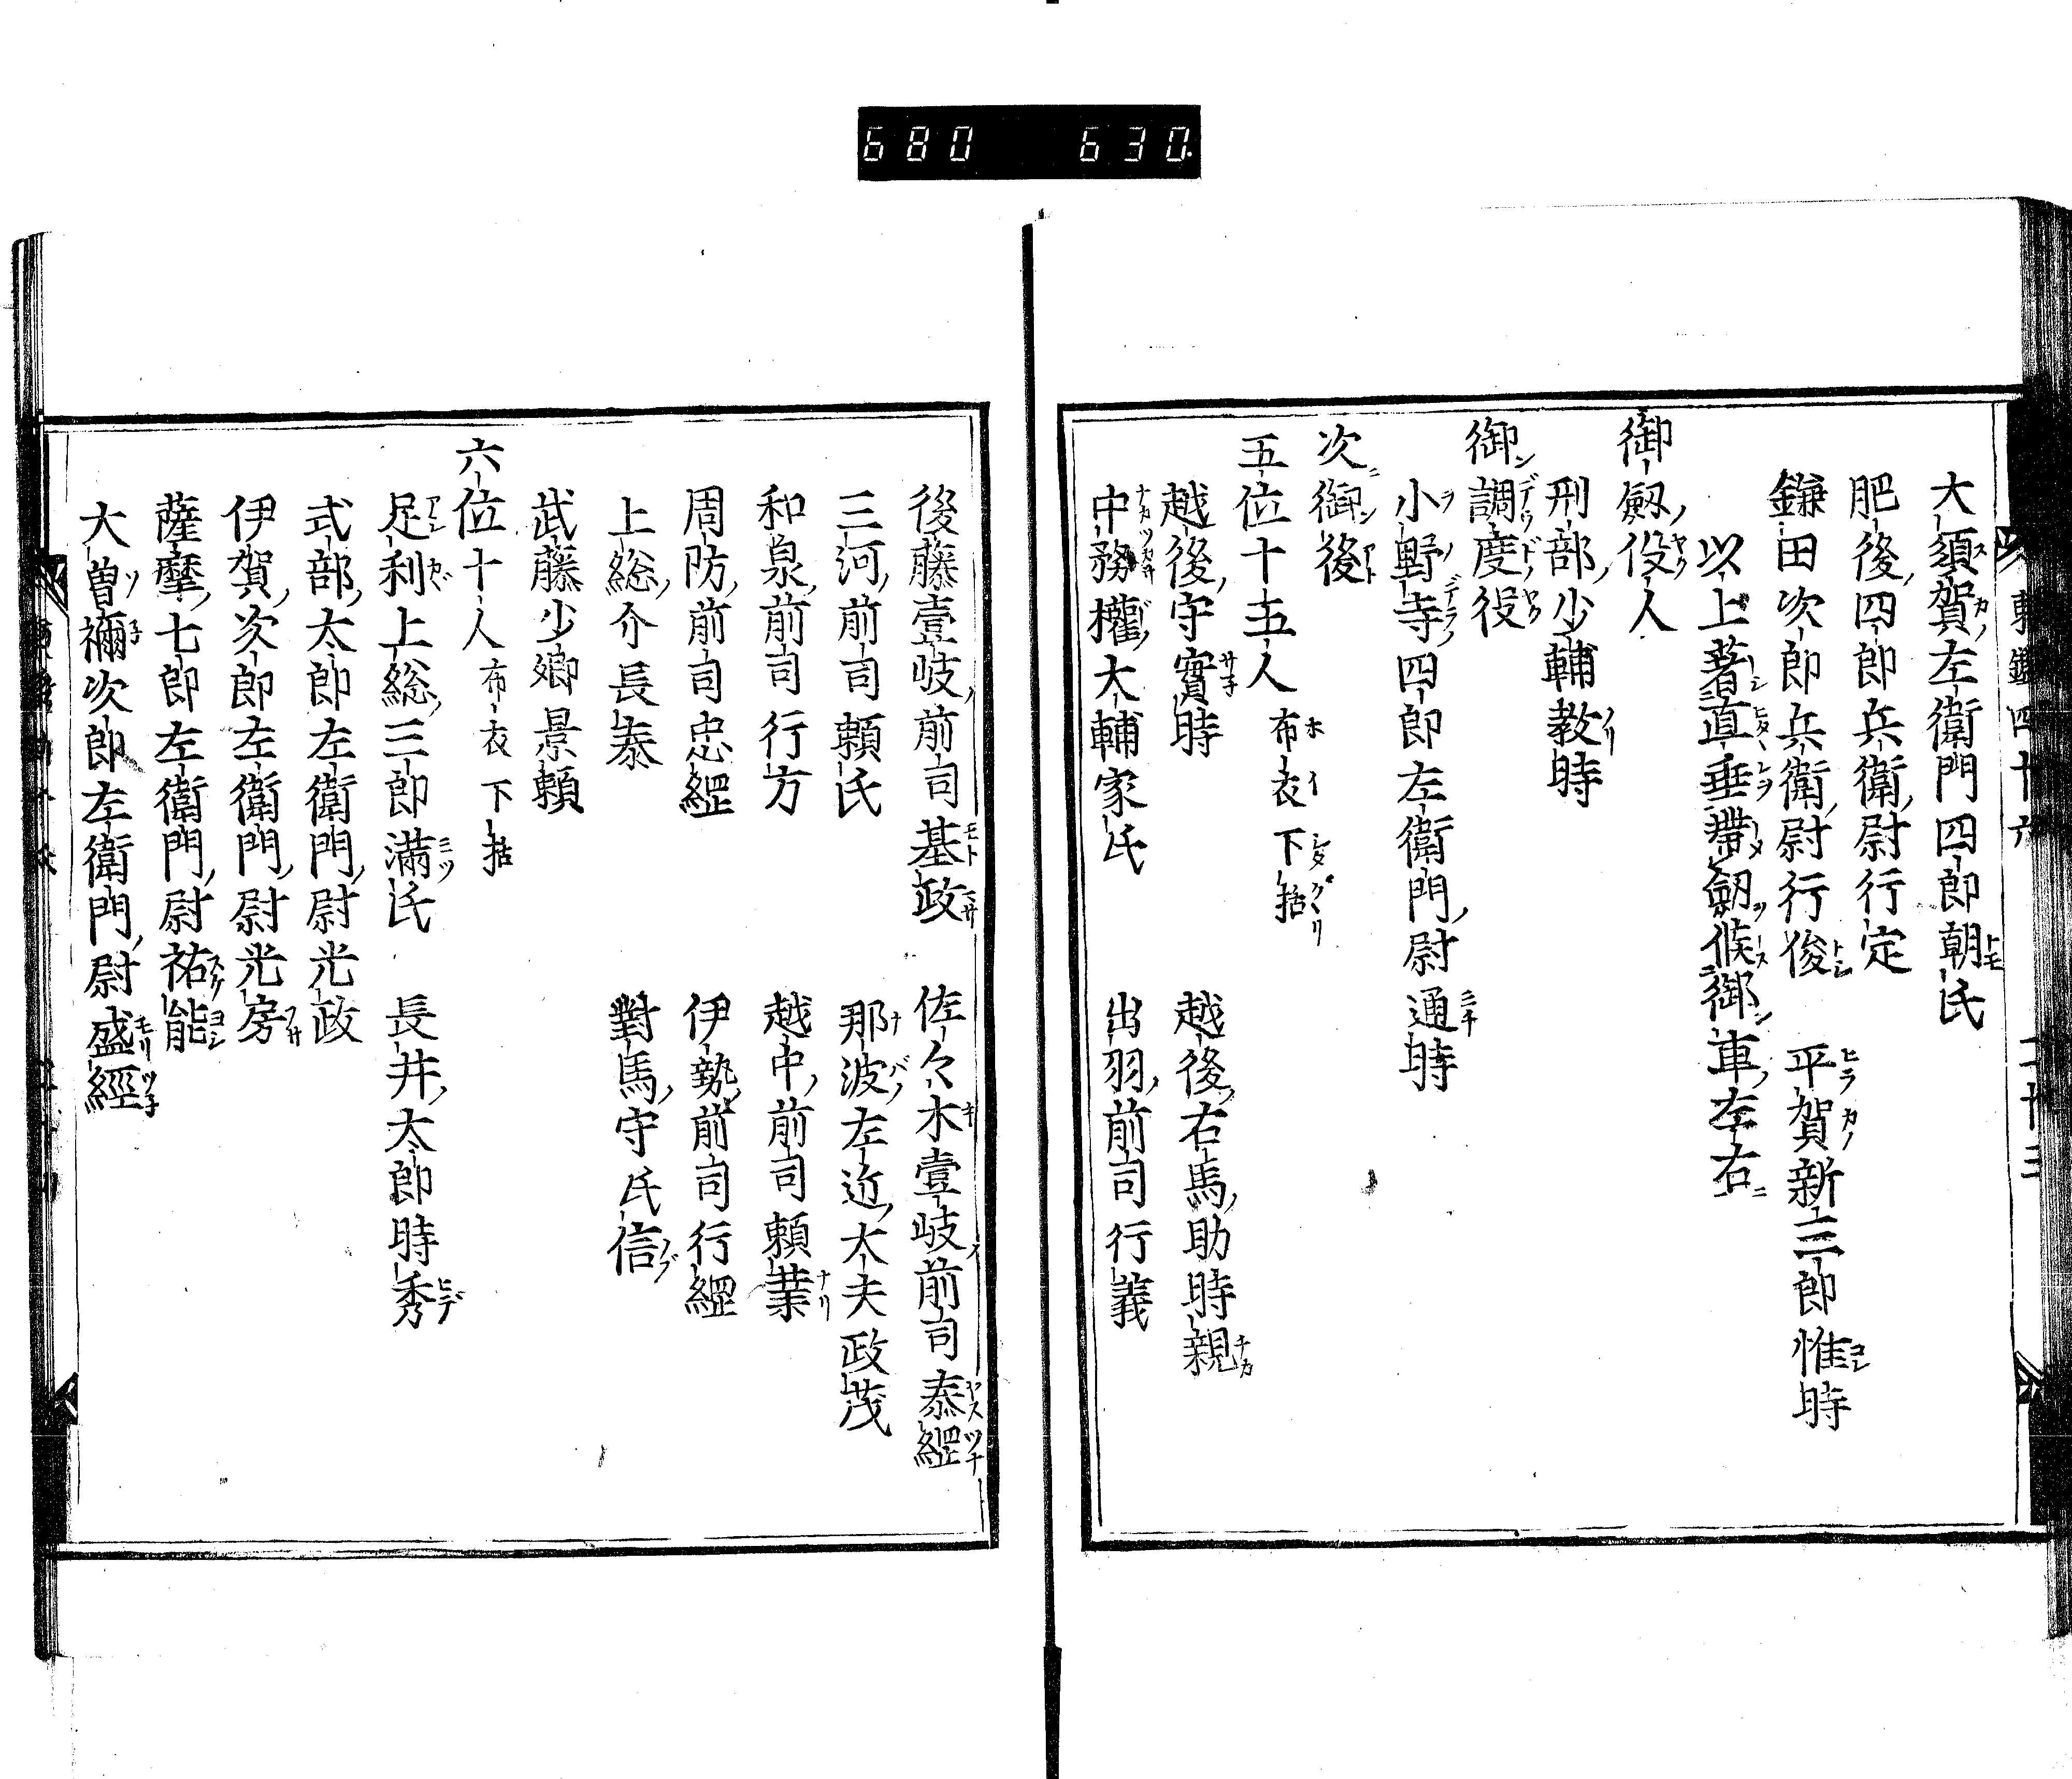 680 630
大須賀左衛門四郎朝氏
肥後四郎兵衛尉行定
鎌田次郎兵衛尉行俊 平賀新三郎惟時
以上著直垂帶劔候御車左右
御劔役人
刑部少輔教時
御調度役
小野寺四郎左衛門尉通時
次御後
五位十五人布衣下括
越後守實時 越後右馬助時親
中務權大輔家氏 出羽前司行義
後藤壹岐前司基政 佐々木壹岐前司泰綱
三河前司頼氏 那波左近大夫政茂
和泉前司行方 越中前司頼業
周防前司忠綱 伊勢前司行綱
上総介長泰 對馬守氏信
武藤少卿景頼
六位十人布衣下括
足利上総三郎滿氏 長井太郎時秀
式部太郎左衛門尉光政
伊賀次郎左衛門尉光房
薩摩七郎左衛門尉祐能
大曽禰次郎左衛門尉盛經